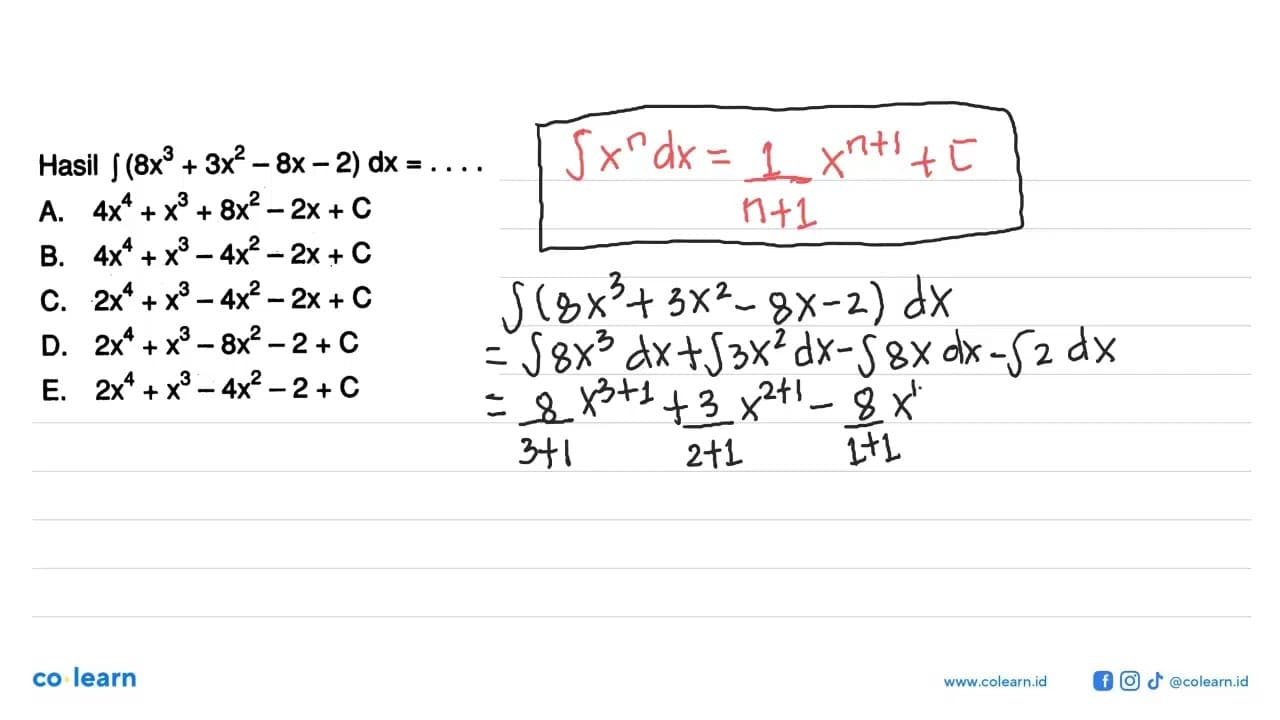 Hasil ∫ (8x³ + 3x² – 8x – 2) dx = . . . .
A. 4x⁴ + x³ + 8x² – 2x + C
B. 4x⁴ + x³ – 4x² – 2x + C
C. 2x⁴ + x³ – 4x² – 2x + C
D. 2x⁴ + x³ – 8x² – 2 + C
E. 2x⁴ + x³ – 4x² – 2 + C
∫ xⁿ dx = 1/(n+1) xⁿ⁺¹ + C
∫ (8x³ + 3x² – 8x – 2) dx
= ∫ 8x³ dx + ∫ 3x² dx – ∫ 8x dx – ∫ 2 dx
= 8/(3+1) x³⁺¹ + 3/(2+1) x²⁺¹ – 8/(1+1) x¹
co learn
www.colearn.id
@colearn.id